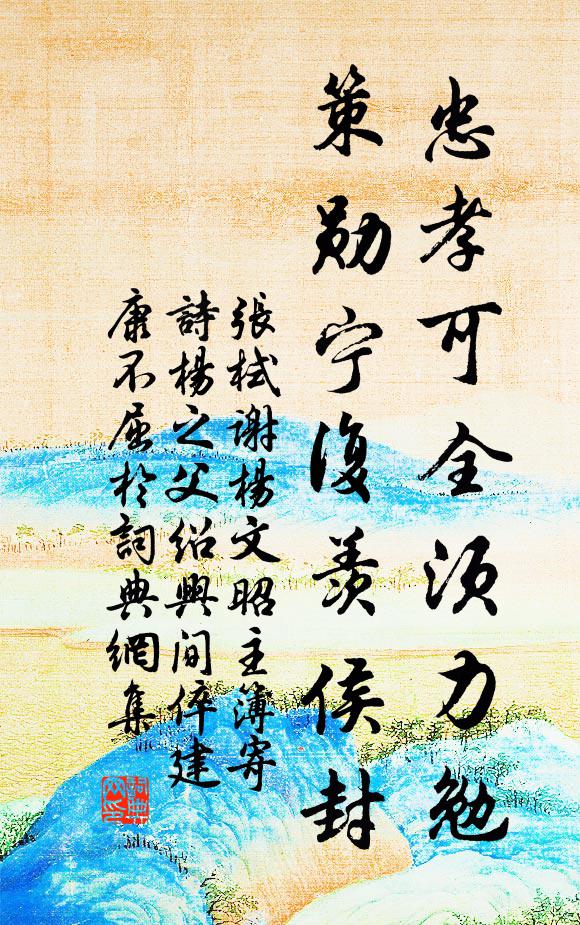 忠孝可全須力勉
策勛宁復羨侯封
張栻謝楊文昭主簿寄
詩楊之父紹興間倅建
康不屈於詞典網集